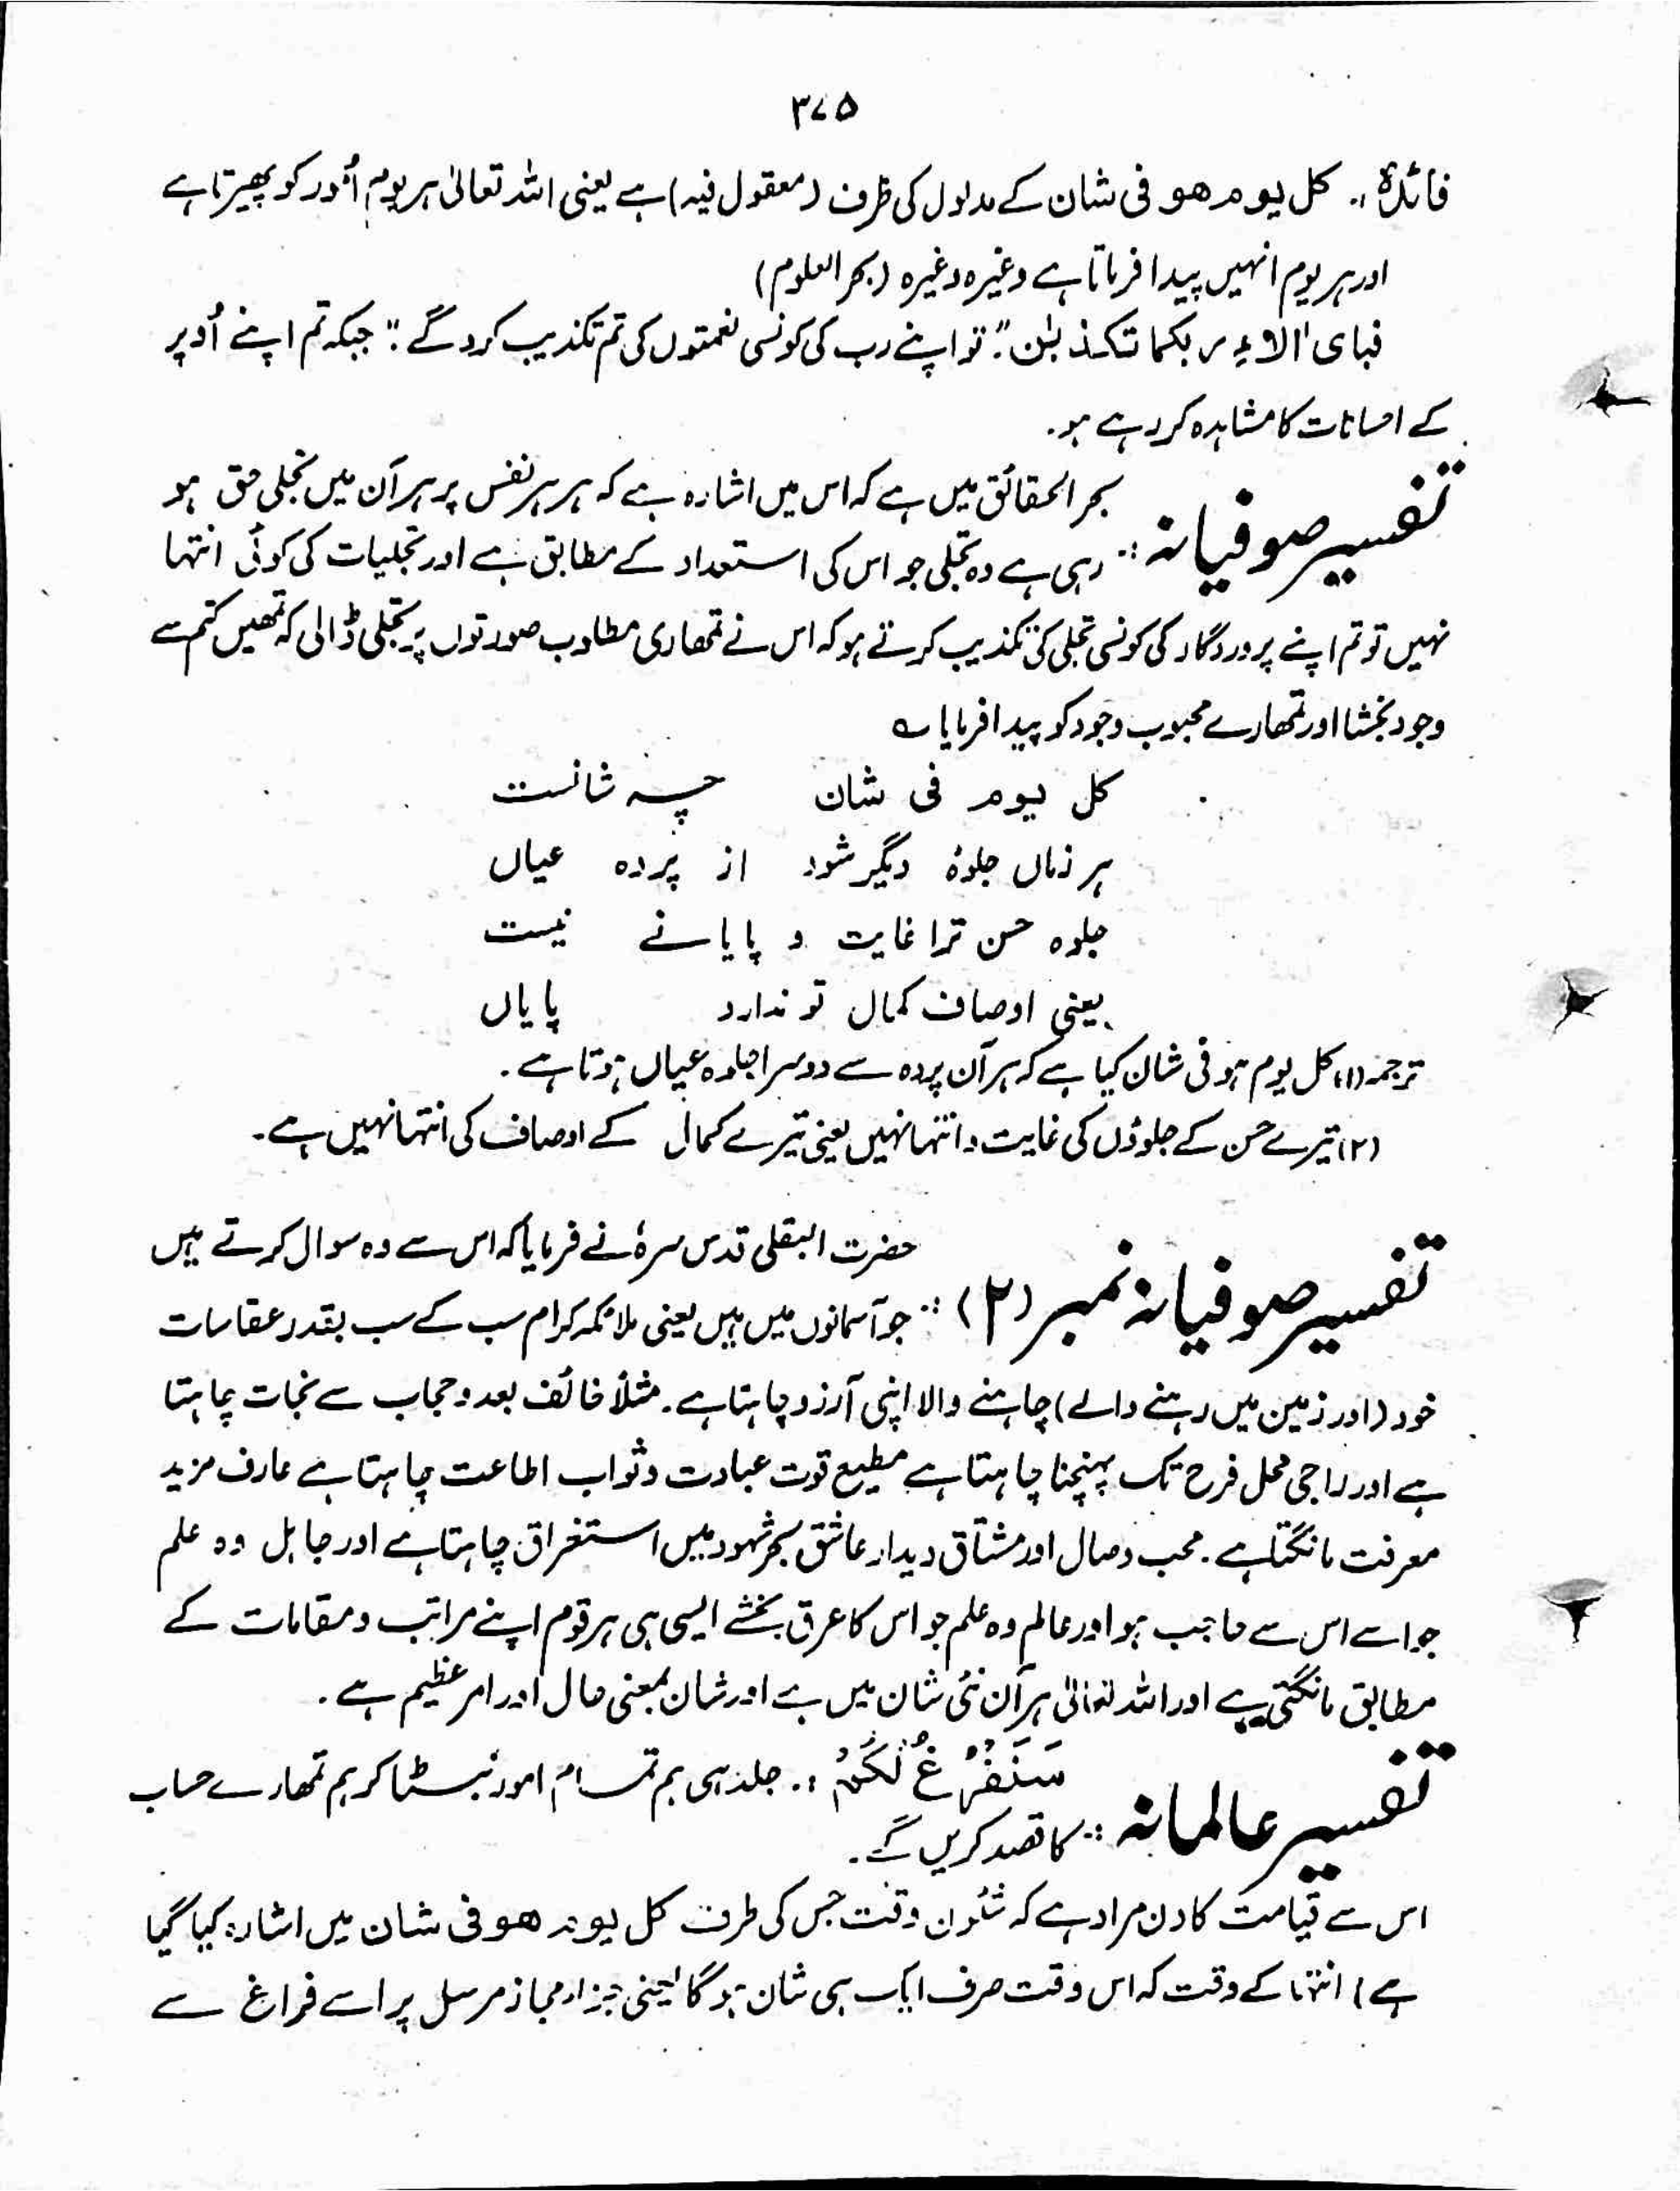 ۳۷۵
فائدہ :۔ کل یوم ھو فی شان کے مدلول کی ظرف (معقول فیہ) ہے یعنی اللہ تعالیٰ ہر یوم اُمور کو پھیرتا ہے
اور ہر یوم انہیں پیدا فرماتا ہے وغیرہ وغیرہ (بحر العلوم)
فبای اٰلاءِ ربکما تکذبٰن :" تو اپنے رب کی کونسی نعمتوں کی تم تکذیب کرو گے :" جبکہ تم اپنے اُوپر
کے احسانات کا مشاہدہ کر رہے ہو۔
تفسیر صوفیانہ :۔ بحر الحقائق میں ہے کہ اس میں اشارہ ہے کہ ہر ہر نفس پر ہر آن میں تجلی حق ہو
رہی ہے وہ تجلی جو اس کی استعداد کے مطابق ہے اور تجلیات کی کوئی انتہا
نہیں تو تم اپنے پروردگار کی کونسی تجلی کی تکذیب کرتے ہو کہ اس نے تمھاری مطلوب صورتوں پر تجلی ڈالی کہ تمھیں کتم سے
وجود بخشا اور تمھارے محبوب وجود کو پیدا فرمایا ؎
کل یوم فی شان چہ شانست
ہر زماں جلوۂ دیگر شود از پردہ عیاں
جلوہ حسن ترا غایت و پایانے نیست
یعنی اوصاف کمال تو ندارد پایاں
ترجمہ (۱) کل یوم ہو فی شان کیا ہے کہ ہر آن پردہ سے دوسرا جلوہ عیاں ہوتا ہے۔
(۲) تیرے حسن کے جلوؤں کی غایت و انتہا نہیں یعنی تیرے کمال کے اوصاف کی انتہا نہیں ہے۔
تفسیر صوفیانہ نمبر (۲) :۔ حضرت البقلی قدس سرہٗ نے فرمایا کہ اس سے وہ سوال کرتے ہیں
جو آسمانوں میں ہیں یعنی ملائکہ کرام سب کے سب بقدر مقامات
خود (اور زمین میں رہنے والے) چاہنے والا اپنی آرزو چاہتا ہے۔ مثلاً خائف بعد و حجاب سے نجات چاہتا
ہے اور راجی محل فرح تک پہنچنا چاہتا ہے مطیع قوت عبادت و ثواب اطاعت چاہتا ہے عارف مزید
معرفت مانگتا ہے۔ محب وصال اور مشتاق دیدار عاشق بحر شہود میں استغراق چاہتا ہے اور جاہل وہ علم
جو اسے اس سے حاجب ہو اور عالم وہ علم جو اس کا عرق بخشے ایسی ہی ہر قوم اپنے مراتب و مقامات کے
مطابق مانگتی ہے اور اللہ تعالیٰ ہر آن نئی شان میں ہے اور شان بمعنی حال اور امر عظیم ہے۔
تفسیر عالمانہ :۔ سَنَفْرُغُ لَکُمْ :۔ جلد ہی ہم تمام امور نبٹا کر ہم تمھارے حساب
کا قصد کریں گے۔
اس سے قیامت کا دن مراد ہے کہ شئون وقت جس کی طرف کل یوم ھو فی شان میں اشارہ کیا گیا
ہے) انتہا کے وقت کہ اس وقت صرف ایک ہی شان ہوگا یعنی جزا مجاز مرسل پر اسے فراغ سے